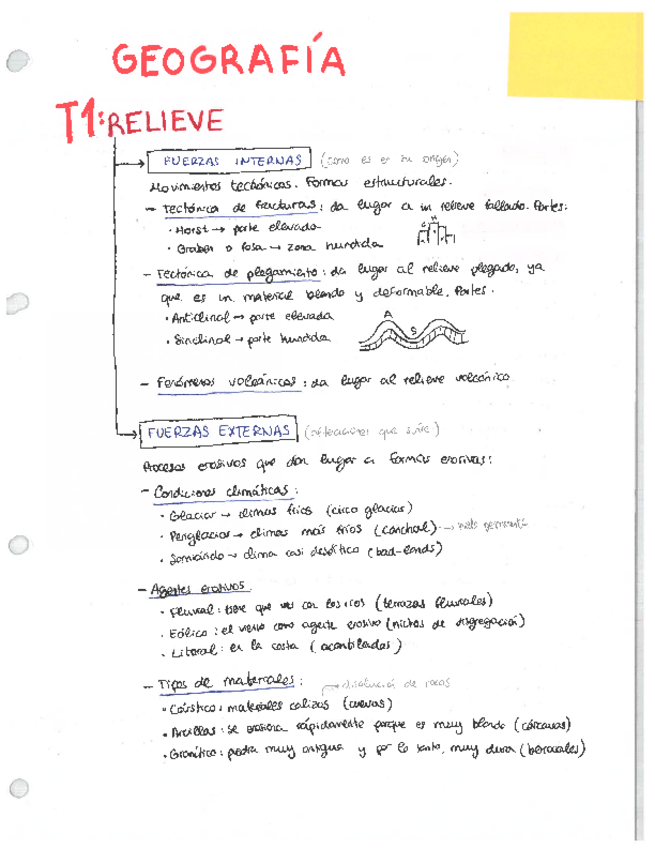 GEOGRAFÍA
T1: RELIEVE
FUERZAS INTERNAS (como es en su origen)
Movimientos tectónicos. Formas estructurales.
- Tectónica de fracturas: da lugar a un relieve fallado. Partes:
· Horst → parte elevada
· Graben o fosa → zona hundida
- Tectónica de plegamiento: da lugar al relieve plegado, ya
que es un material blando y deformable. Partes.
· Anticlinal → parte elevada
· Sinclinal → parte hundida
A
S
- Fenómenos volcánicos: da lugar al relieve volcánico
FUERZAS EXTERNAS (alteraciones que sufre)
Procesos erosivos que dan lugar a formas erosivas:
- Condiciones climáticas:
· Glaciar → climas fríos (circo glaciar)
· Periglaciar → climas más fríos (canchal) →
· Semiárido → clima casi desértico (bad-lands)
- Agentes erosivos
· Fluvial: tiene que ver con los ríos (terrazas fluviales)
· Eólico: el viento como agente erosivo (nichos de disgregación)
· Litoral: en la costa (acantilados)
- Tipos de materiales:
→ disolución de rocas
· Cárstico: materiales calizos (cuevas)
· Arcillas: se erosiona rápidamente porque es muy blando (cárcavas)
· Granítico: piedra muy antigua y por lo tanto, muy dura (berrocales)